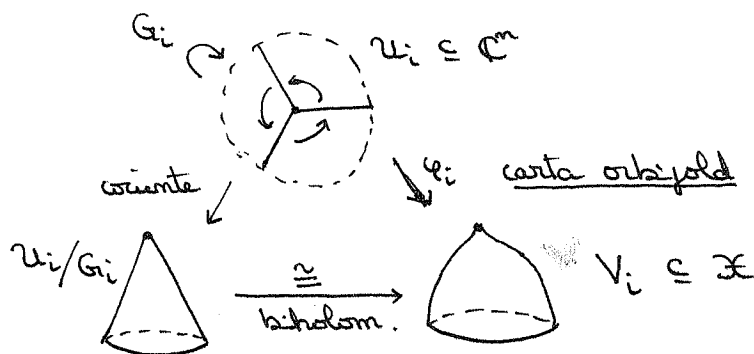 Gᵢ
𝒰ᵢ ⊆ ℂⁿ
cociente
φᵢ
carta orbifold
𝒰ᵢ/Gᵢ
≅
biholom.
Vᵢ ⊆ 𝒳